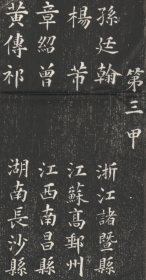 第三甲
孫廷翰 浙江諸暨縣
楊芾 江蘇高郵州
章紹曾 江西南昌縣
黃傳祁 湖南長沙縣